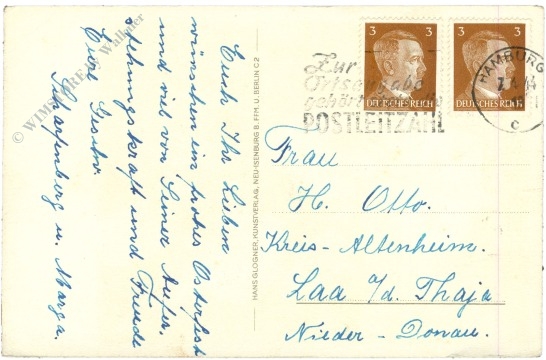 Euch Ihr Lieben
wünschen ein frohes Osterfest
und viel von Seiner Aufer-
stehungskraft und Freude
Eure Geschw.
Scharfenberg u. Marga.
© WIMPFFEN - Wallmoden
HANS GLOGNER, KUNSTVERLAG, NEU-ISENBURG B. FFM. U. BERLIN C 2
3 3
3 3
DEUTSCHES REICH
DEUTSCHES REICH
Zur
Ortsangabe
gehört die
POSTLEITZAHL
HAMBURG
c
Frau
H. Otto.
Kreis-Altenheim.
Laa a/d. Thaja
Nieder-Donau.